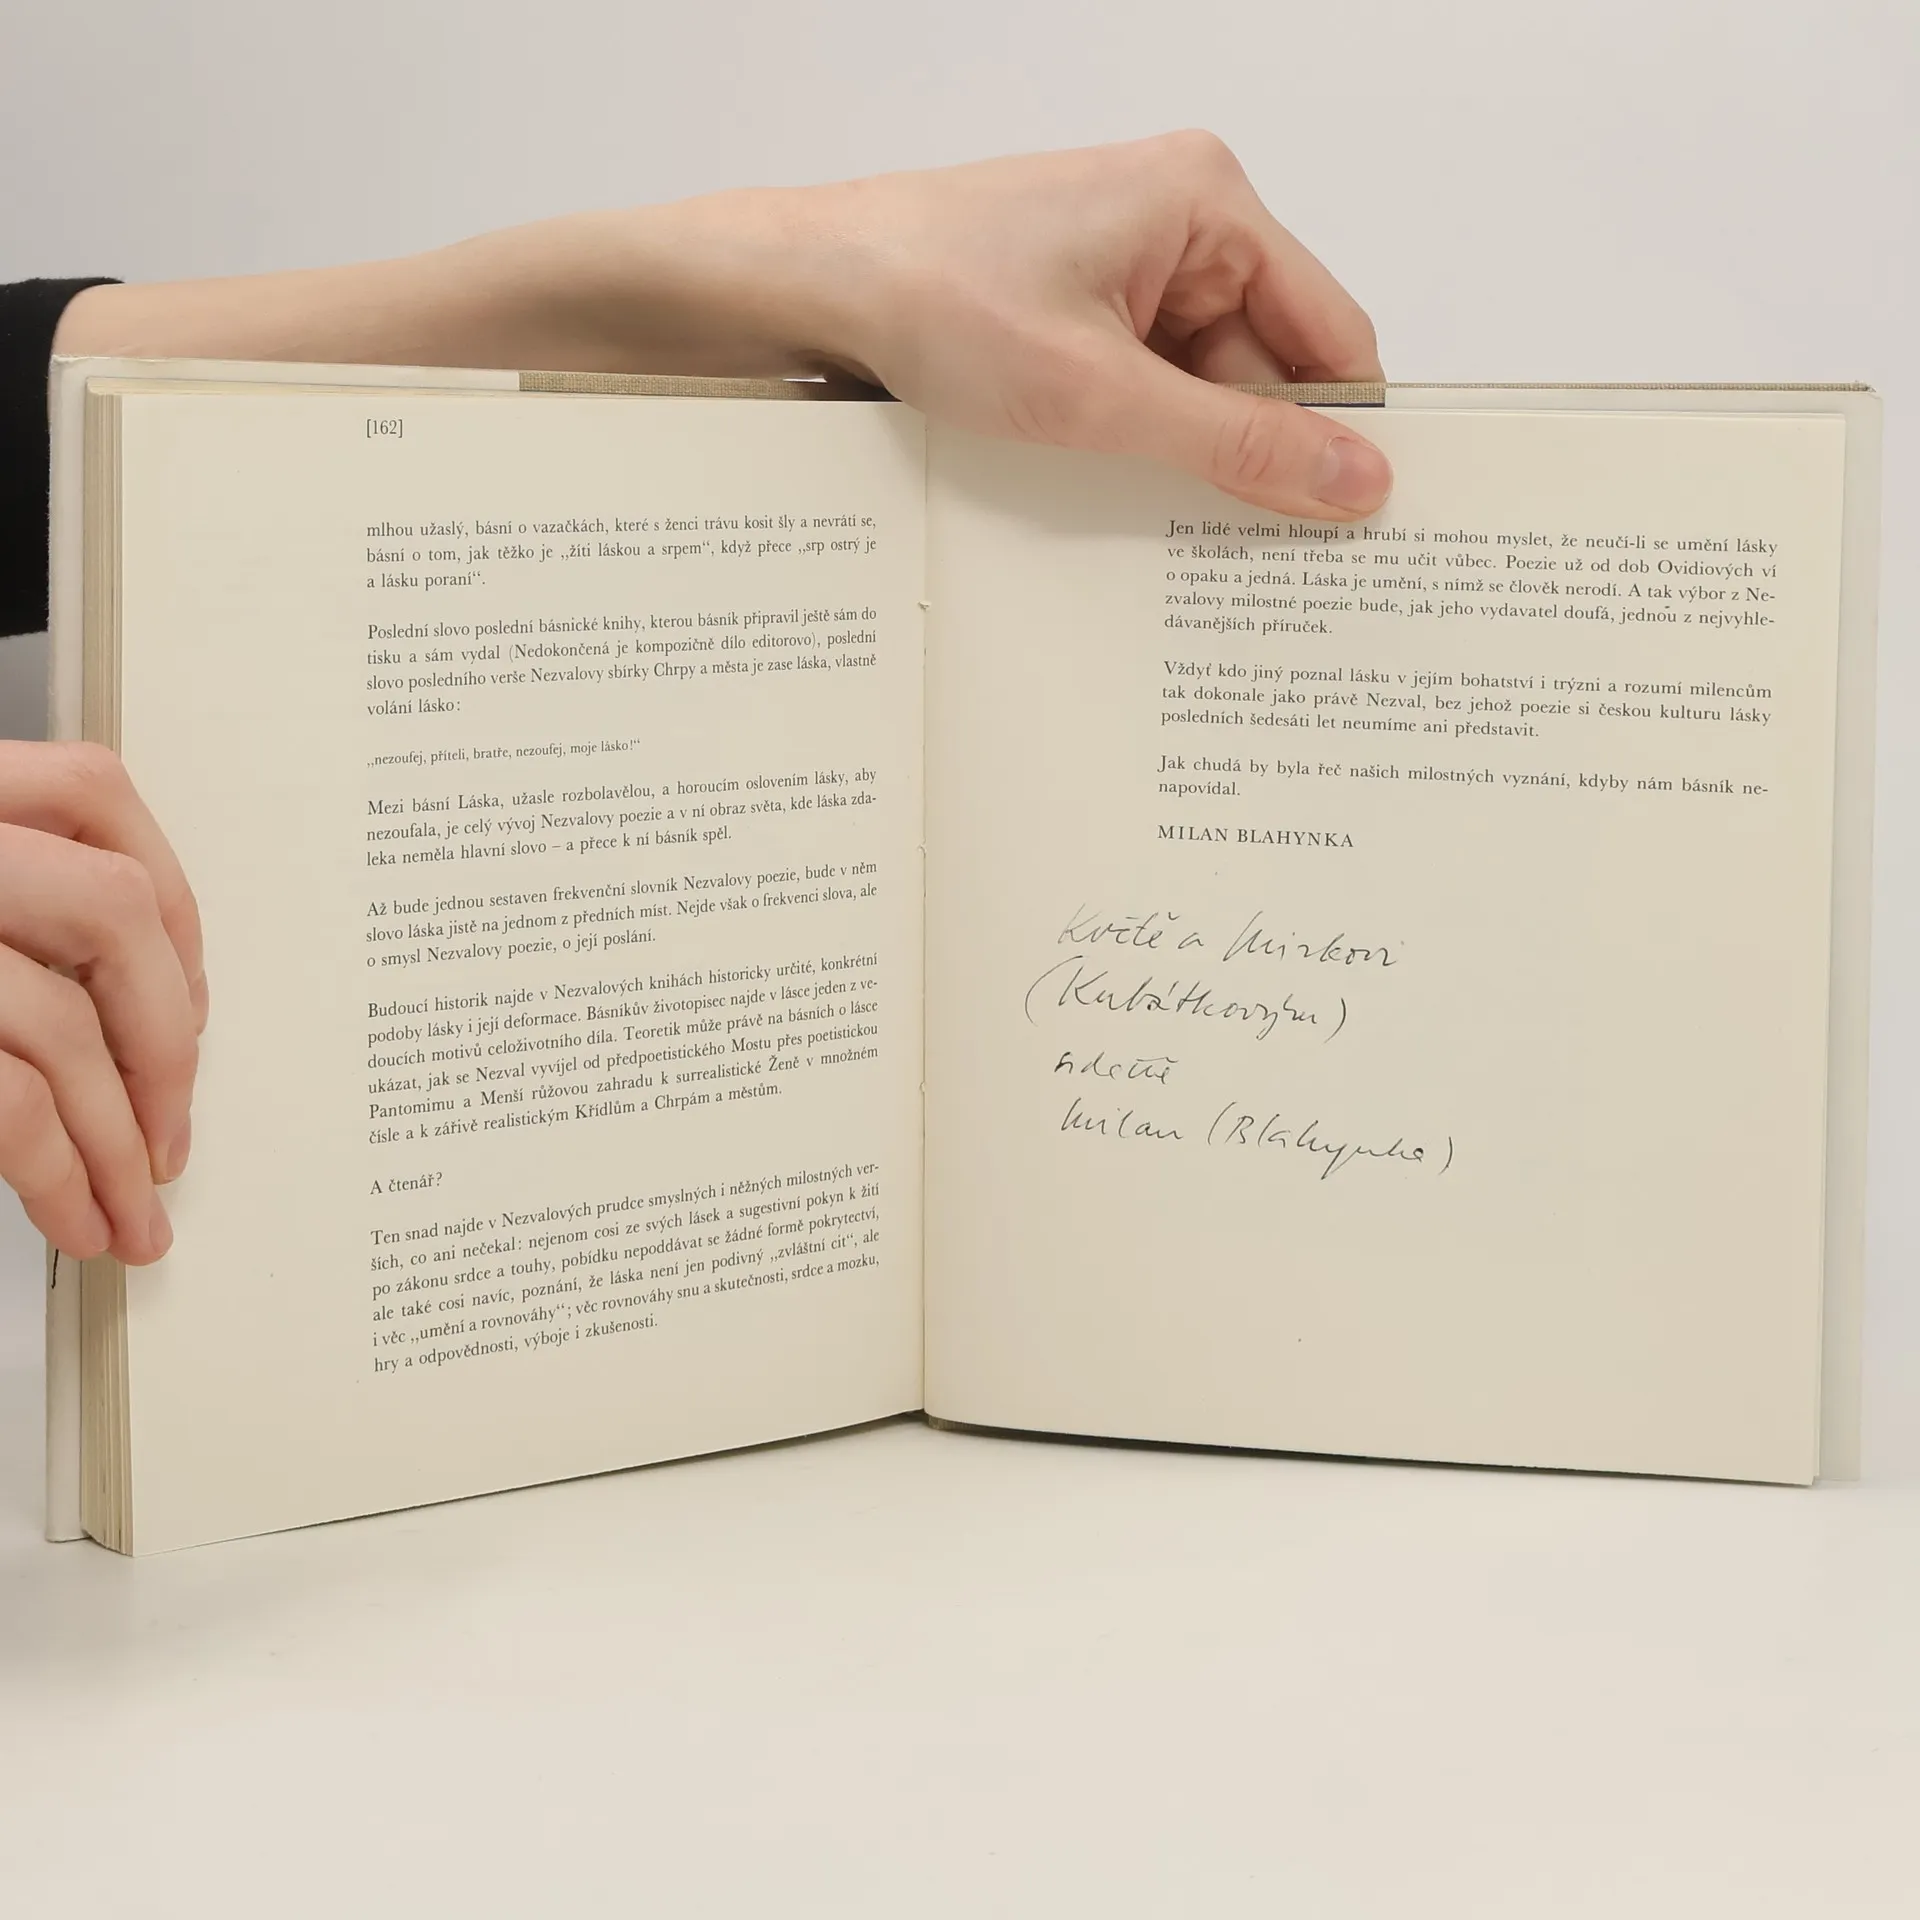 [162]
mlhou užaslý, básní o vazačkách, které s ženci trávu kosit šly a nevrátí se,
básní o tom, jak těžko je „žíti láskou a srpem“, když přece „srp ostrý je
a lásku poraní“.
Poslední slovo poslední básnické knihy, kterou básník připravil ještě sám do
tisku a sám vydal (Nedokončená je kompozičně dílo editorovo), poslední
slovo posledního verše Nezvalovy sbírky Chrpy a města je zase láska, vlastně
volání lásko:
„nezoufej, příteli, bratře, nezoufej, moje lásko!“
Mezi básní Láska, užasle rozbolavělou, a horoucím oslovením lásky, aby
nezoufala, je celý vývoj Nezvalovy poezie a v ní obraz světa, kde láska zda-
leka neměla hlavní slovo – a přece k ní básník spěl.
Až bude jednou sestaven frekvenční slovník Nezvalovy poezie, bude v něm
slovo láska jistě na jednom z předních míst. Nejde však o frekvenci slova, ale
o smysl Nezvalovy poezie, o její poslání.
Budoucí historik najde v Nezvalových knihách historicky určité, konkrétní
podoby lásky i její deformace. Básníkův životopisec najde v lásce jeden z ve-
doucích motivů celoživotního díla. Teoretik může právě na básních o lásce
ukázat, jak se Nezval vyvíjel od předpoetistického Mostu přes poetistickou
Pantomimu a Menší růžovou zahradu k surrealistické Ženě v množném
čísle a k zářivě realistickým Křídlům a Chrpám a městům.
A čtenář?
Ten snad najde v Nezvalových prudce smyslných i něžných milostných ver-
ších, co ani nečekal: nejenom cosi ze svých lásek a sugestivní pokyn k žití
po zákonu srdce a touhy, pobídku nepoddávat se žádné formě pokrytectví,
ale také cosi navíc, poznání, že láska není jen podivný „zvláštní cit“, ale
i věc „umění a rovnováhy“; věc rovnováhy snu a skutečnosti, srdce a mozku,
hry a odpovědnosti, výboje i zkušenosti.
Jen lidé velmi hloupí a hrubí si mohou myslet, že neučí-li se umění lásky
ve školách, není třeba se mu učit vůbec. Poezie už od dob Ovidiových ví
o opaku a jedná. Láska je umění, s nímž se člověk nerodí. A tak výbor z Ne-
zvalovy milostné poezie bude, jak jeho vydavatel doufá, jednou z nejvyhle-
dávanějších příruček.
Vždyť kdo jiný poznal lásku v jejím bohatství i trýzni a rozumí milencům
tak dokonale jako právě Nezval, bez jehož poezie si českou kulturu lásky
posledních šedesáti let neumíme ani představit.
Jak chudá by byla řeč našich milostných vyznání, kdyby nám básník ne-
napovídal.
MILAN BLAHYNKA
Květě a Mirkovi
(Kubátkovým)
srdečně
Milan (Blahynka)